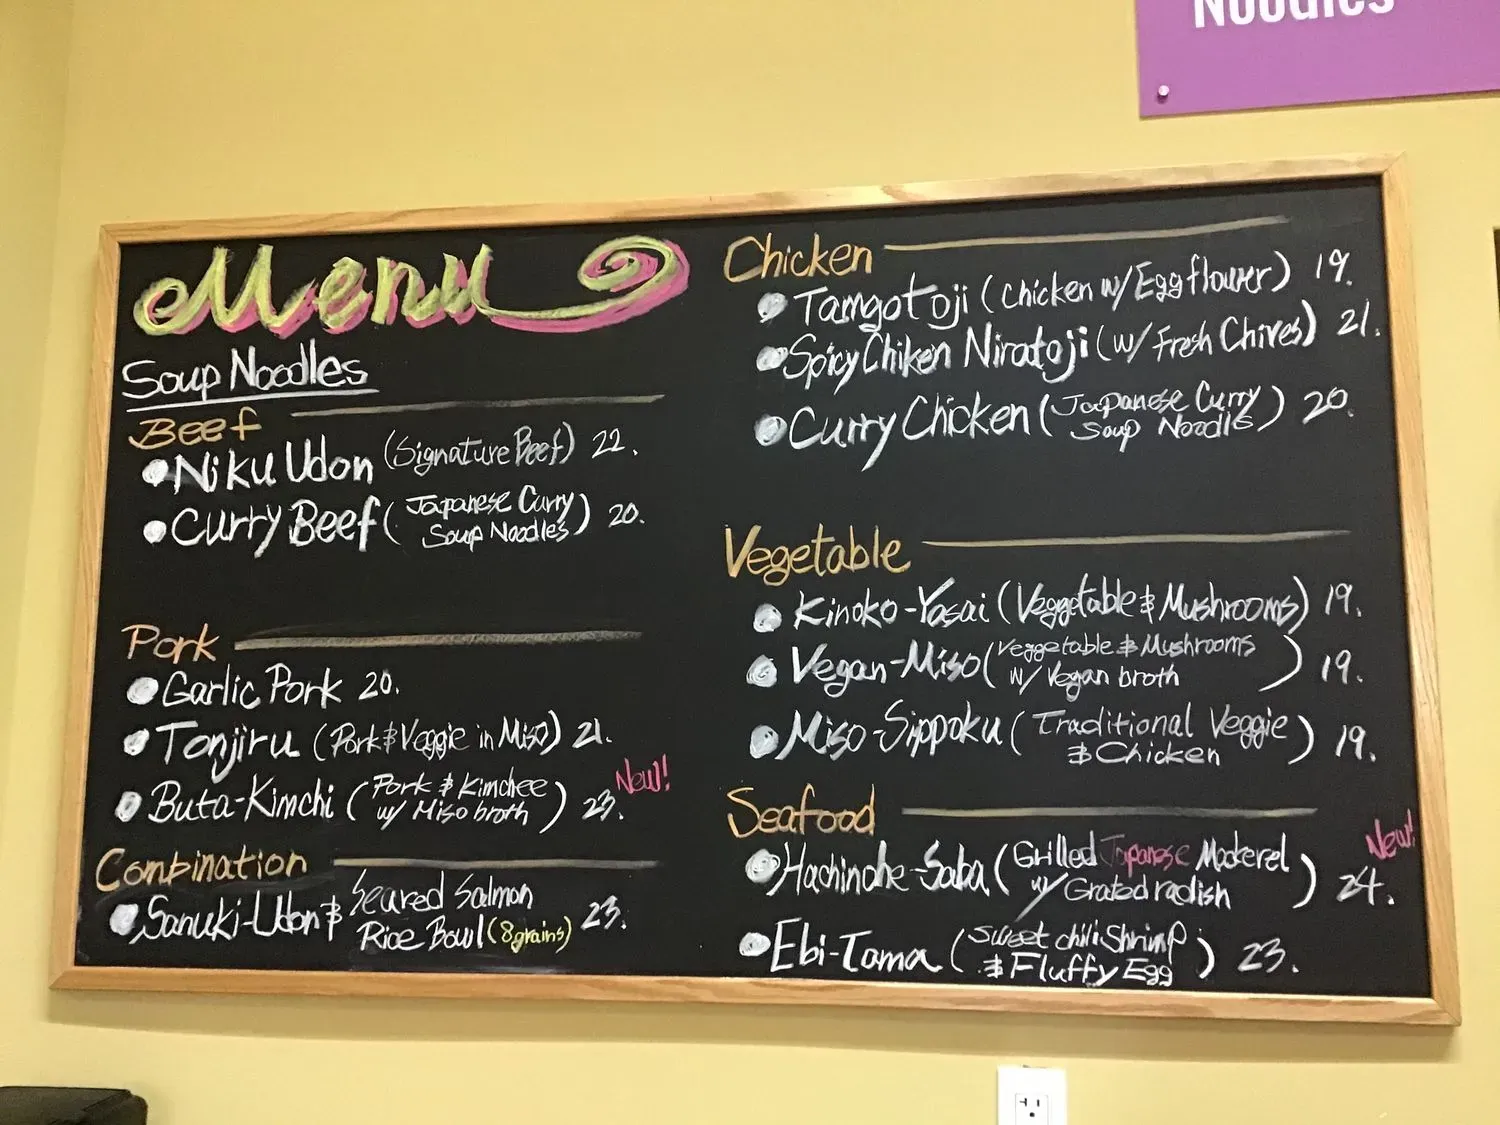 Noodles
Menu
Soup Noodles
Beef
Niku Udon (Signature Beef) 22.
Curry Beef (Japanese Curry
Soup Noodles) 20.
Pork
Garlic Pork 20.
Tonjiru (Pork & Veggie in Miso) 21.
New!
Buta-Kimchi (Pork & Kimchee
w/ Miso broth) 23.
Combination
Sanuki-Udon & Seared Salmon
Rice Bowl (8grains) 23.
Chicken
Tamgotoji (Chicken w/ Egg flower) 19.
Spicy Chiken Niratoji (w/ Fresh Chives) 21.
Curry Chicken (Japanese Curry
Soup Noodls) 20.
Vegetable
Kinoko-Yasai (Veggetable & Mushrooms) 19.
Vegan-Miso (Veggetable & Mushrooms
w/ Vegan broth) 19.
Miso-Sippoku (Traditional Veggie
& Chicken) 19.
Seafood
New!
Hachinohe-Saba (Grilled Japanese Mackerel
w/ Grated radish) 24.
Ebi-Tama (Sweet chili Shrimp
& Fluffy Egg) 23.